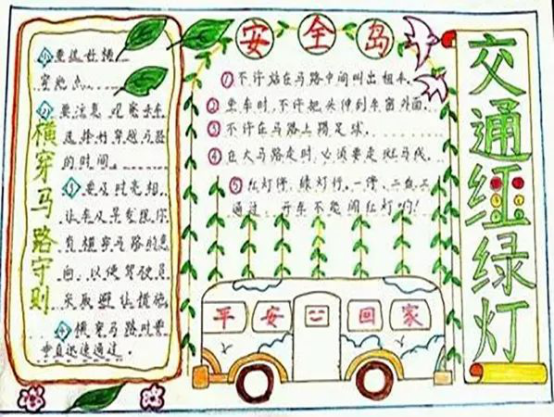 横穿马路守则
①要选好横
穿地点。
②要注意观察来车
选择好穿越马路
的时间。
③要及时亮相,
让车及早发现你
有横穿马路的意
向,以便驾驶员
采取避让措施。
④横穿马路时要
垂直迅速通过。
安全岛
①不许站在马路中间叫出租车。
②坐车时,不许把头伸到车窗外面。
③不许在马路上踢足球。
④在大马路走时,必须要走斑马线。
⑤红灯停,绿灯行。一停、二看、三
通过,开车不能闯红灯哟!
平安回家
交通红绿灯